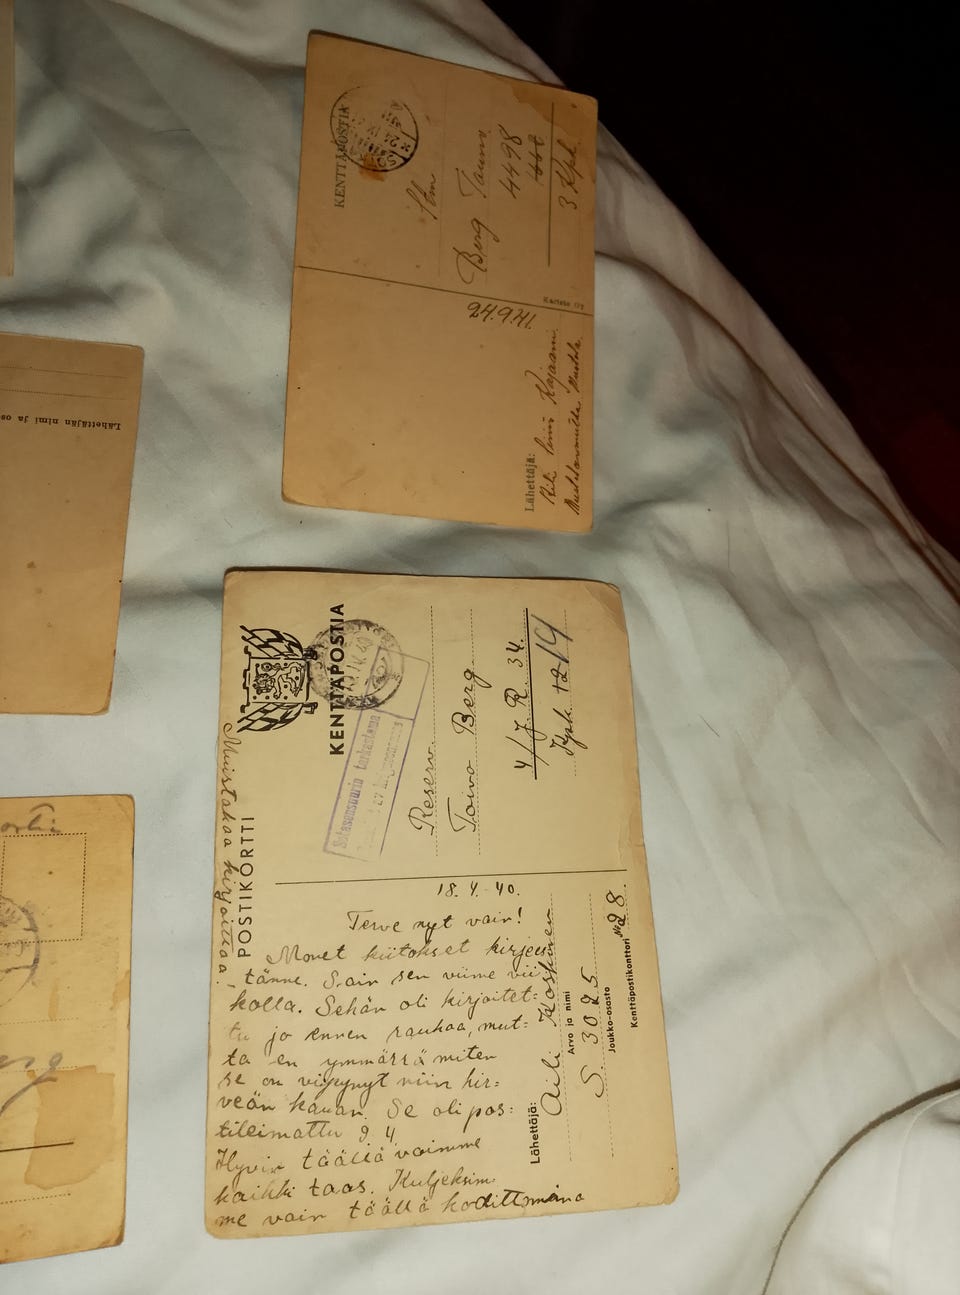 KENTTÄPOSTIA
Stm
Berg Tauno
4498
3 Kpk.
Kariste Oy
24.9.41.
Lähettäjä:
Kajaani
Lähettäjän nimi ja os
POSTIKORTTI
KENTTÄPOSTIA
Muistakaa kirjoittaa!
Sotasensuurin tarkastama
Reserv.
Toivo Berg
4/J.R. 34.
18.4.40.
Terve nyt vain!
Monet kiitokset kirjees
tänne. Sain sen viime vii
kolla. Sehän oli kirjoitet-
tu jo ennen rauhaa, mut-
ta en ymmärrä miten
se on viipynyt niin hir-
veän kauan. Se oli pos-
tileimattu 9.4
Hyvin täällä voimme
kaikki taas. Kuljeksim
me vain täällä kodittmina
Lähettäjä:
Aili Koskinen
Arvo ja nimi
S. 3025
Joukko-osasto
Kenttäpostikonttori № 28
erg